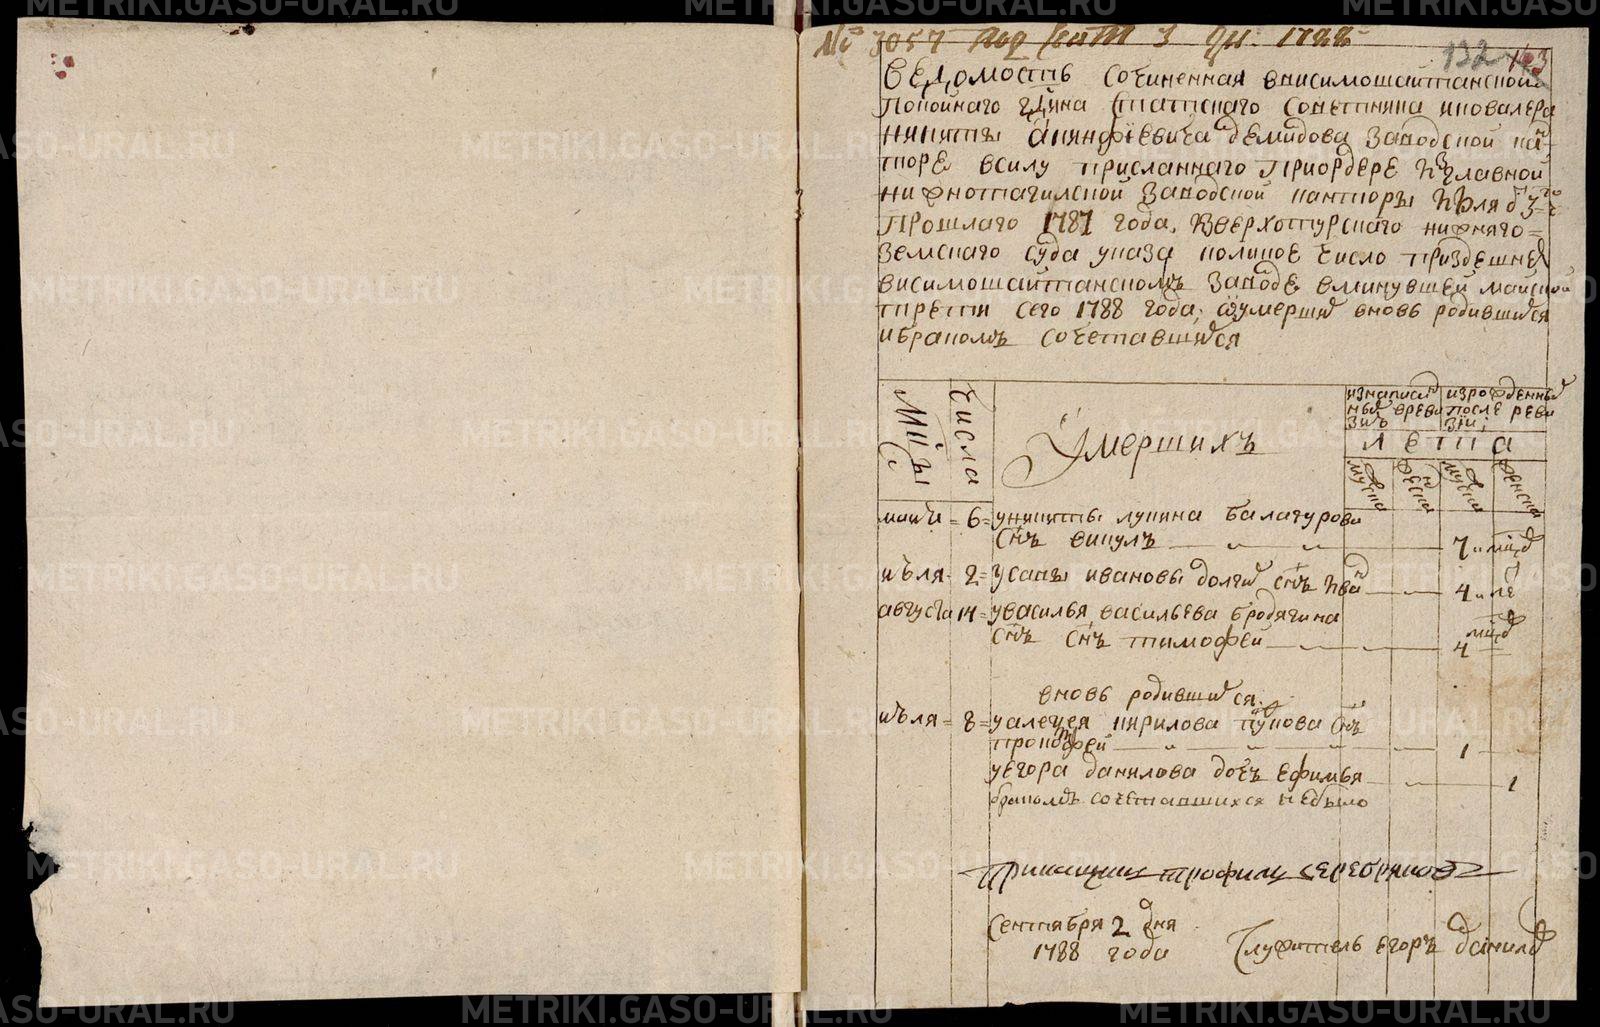 № 3057 Под: Сент 3 дн: 1788
132
143
Ведомость сочиненная ввисимошайтанской
покойнаго гдина статскаго советника иковалера
никиты Акинфиевича демидова Заводской кан
торе всилу присланнаго приордере изглавной
нижнотагилской Заводской канторы июля от 3г
прошлаго 1787 года, изверхотурскаго нижняго=
земскаго суда указа колико числo приздешне
висимошайтанскомъ Заводе вминувшей майской
трети сего 1788 года, умерших вновь родившихся
ибракомъ сочетавшихся
Мцы
Числа
Умершихъ
изнаписан
ных вреви
зию
изрожденных
после реви
зии;
лета
мужска
женска
мужска
женска
майя = 6 = уникиты лукина балагурова
снъ викулъ — 7 мцо
июля = 2 = усавы иванова долгих снъ иван — 4 не
августа 14 = увасилья васильева бродягина
снъ снъ тимофей — 4 мцо
вновь родившихся
июля = 8 = уалексея кирилова пупова снъ
прокофей — 1
уегора данилова дочь ефимья — 1
бракомъ сочетавшихся небыло
Прикащик трофимъ серебряков
Сентября 2 дня
1788 года
Служитель егоръ данилов
METRIKI.GASO-URAL.RU